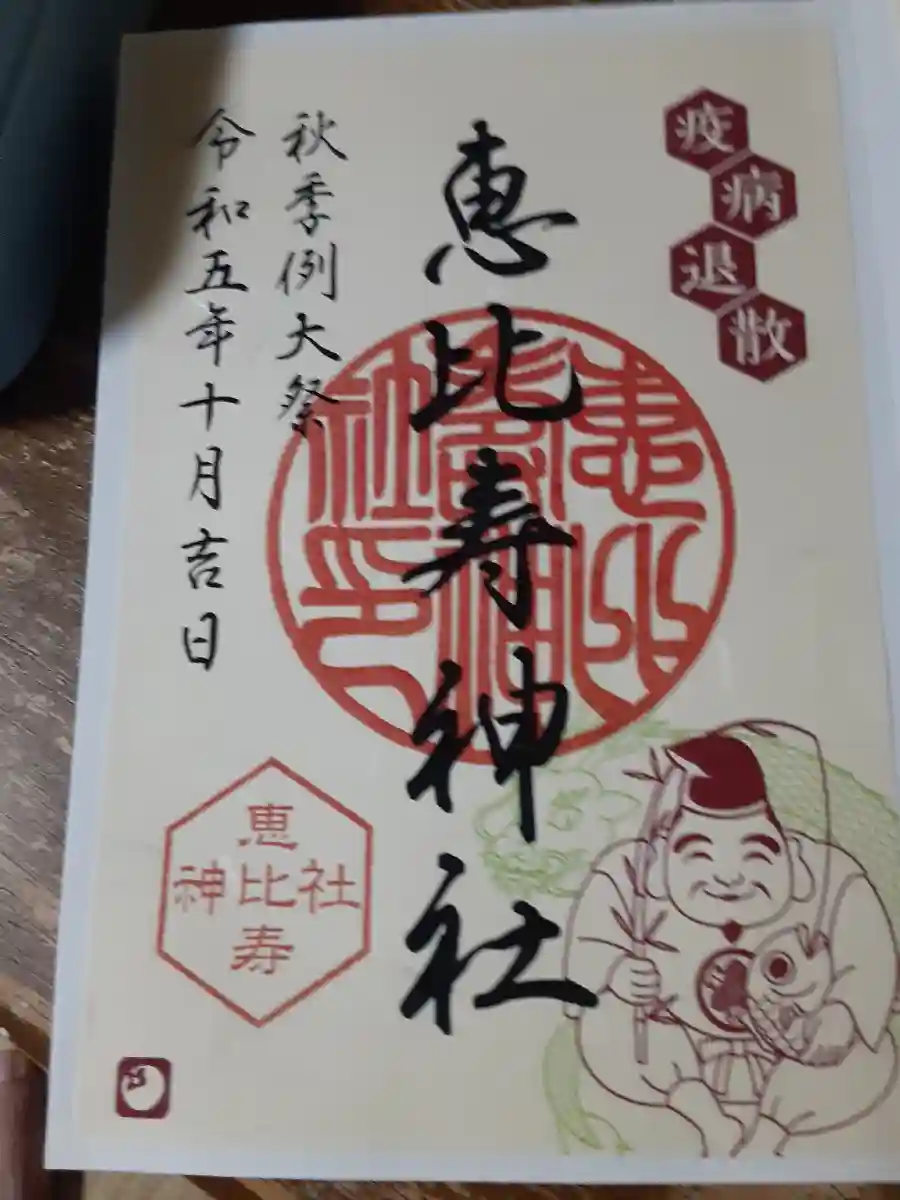 疫病退散
恵比寿神社
秋季例大祭
令和五年十月吉日
恵比寿神社印
恵
神比社
寿